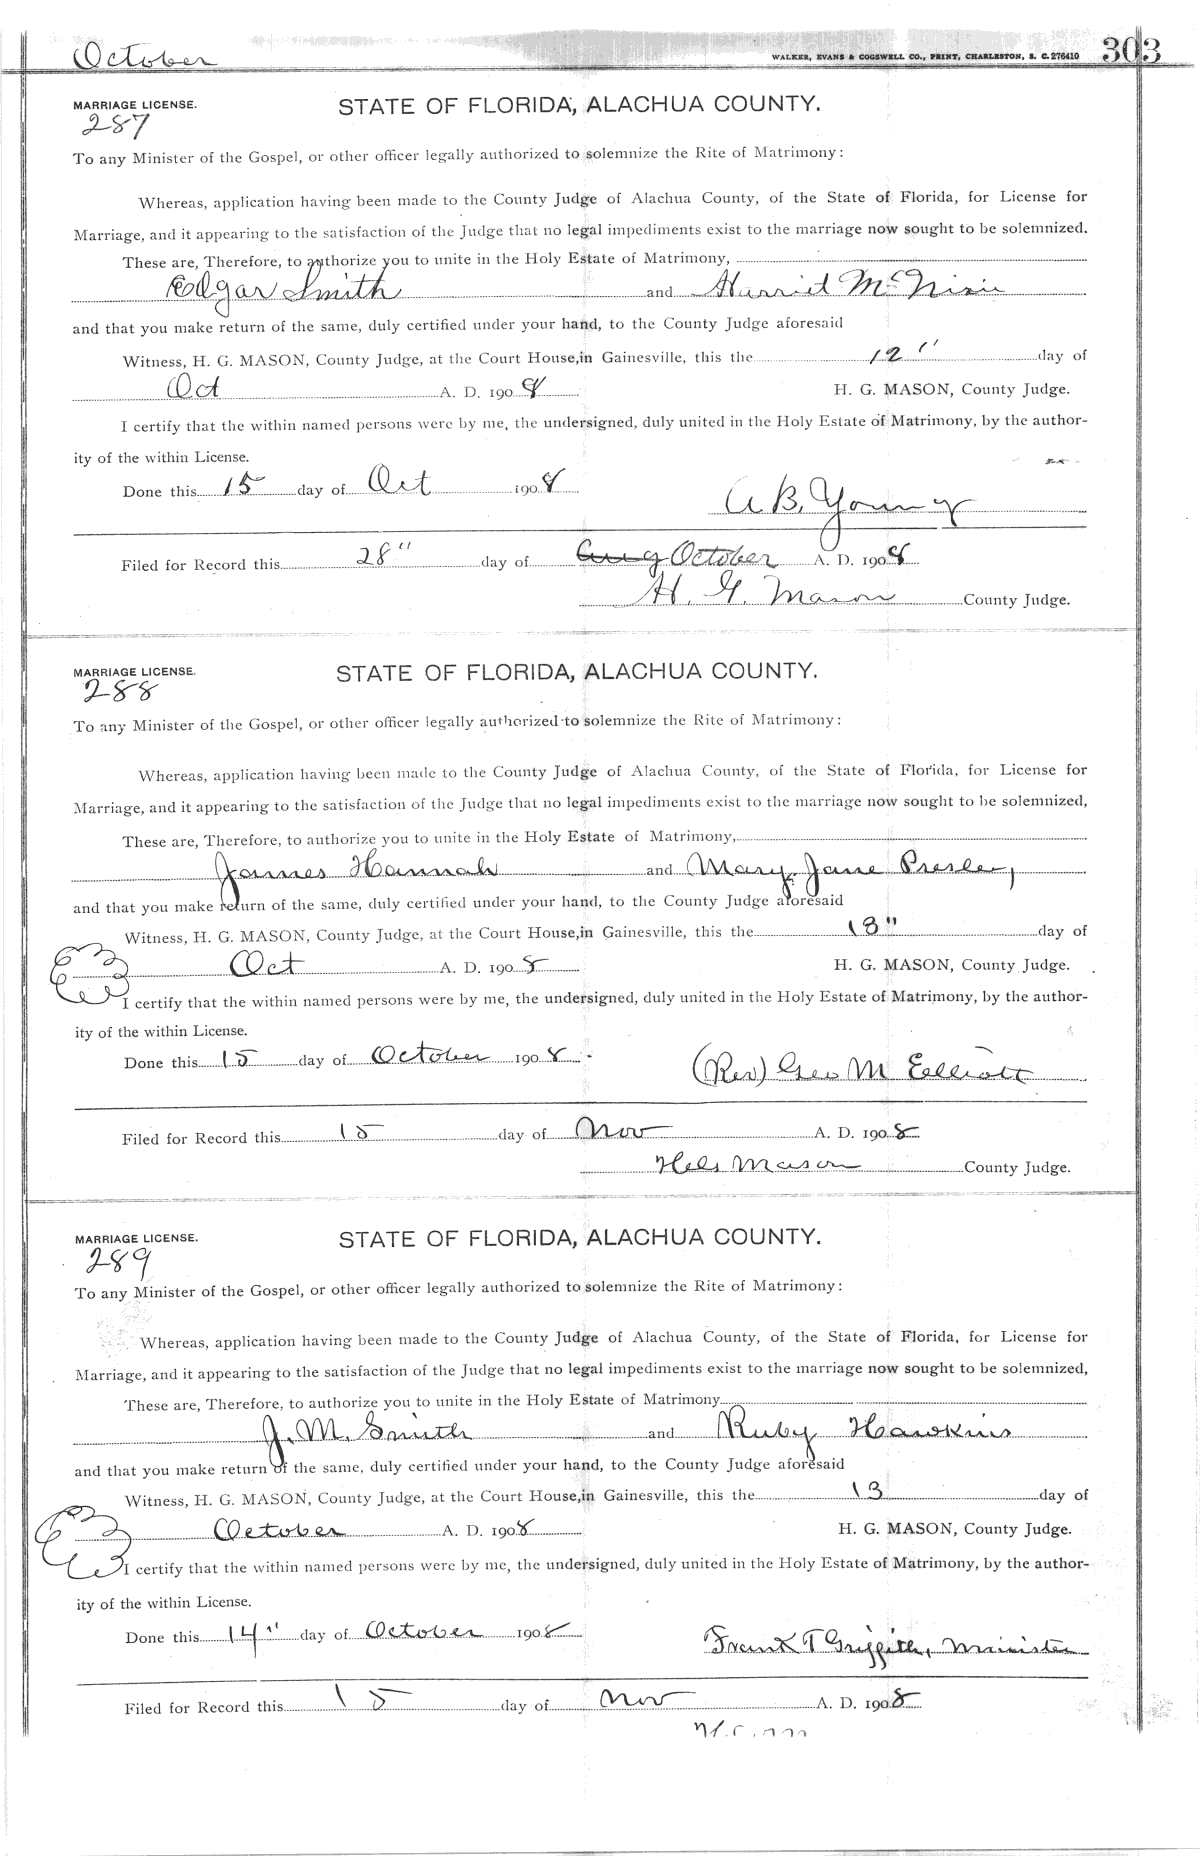 October
WALKER, EVANS & COGSWELL CO., PRINT, CHARLESTON, S. C. 276410 303
MARRIAGE LICENSE. STATE OF FLORIDA, ALACHUA COUNTY.
287
To any Minister of the Gospel, or other officer legally authorized to solemnize the Rite of Matrimony:
Whereas, application having been made to the County Judge of Alachua County, of the State of Florida, for License for
Marriage, and it appearing to the satisfaction of the Judge that no legal impediments exist to the marriage now sought to be solemnized.
These are, Therefore, to authorize you to unite in the Holy Estate of Matrimony,
Edgar Smith and Harriet
and that you make return of the same, duly certified under your hand, to the County Judge aforesaid
Witness, H. G. MASON, County Judge, at the Court House, in Gainesville, this the 12" day of
Oct A. D. 1908 H. G. MASON, County Judge.
I certify that the within named persons were by me, the undersigned, duly united in the Holy Estate of Matrimony, by the author-
ity of the within License.
Done this 15 day of Oct 1908
A B. Young
Filed for Record this 28" day of Aug October A. D. 1908
H. G. Mason County Judge.
MARRIAGE LICENSE. STATE OF FLORIDA, ALACHUA COUNTY.
288
To any Minister of the Gospel, or other officer legally authorized to solemnize the Rite of Matrimony:
Whereas, application having been made to the County Judge of Alachua County, of the State of Florida, for License for
Marriage, and it appearing to the satisfaction of the Judge that no legal impediments exist to the marriage now sought to be solemnized,
These are, Therefore, to authorize you to unite in the Holy Estate of Matrimony,
James Hannah and Mary Jane Presley
and that you make return of the same, duly certified under your hand, to the County Judge aforesaid
Witness, H. G. MASON, County Judge, at the Court House, in Gainesville, this the 13" day of
Oct A. D. 1908 H. G. MASON, County Judge.
I certify that the within named persons were by me, the undersigned, duly united in the Holy Estate of Matrimony, by the author-
ity of the within License.
Done this 15 day of October 1908
(Rev) Geo M Elliott
Filed for Record this 15 day of Nov A. D. 1908
Mason County Judge.
MARRIAGE LICENSE. STATE OF FLORIDA, ALACHUA COUNTY.
289
To any Minister of the Gospel, or other officer legally authorized to solemnize the Rite of Matrimony:
Whereas, application having been made to the County Judge of Alachua County, of the State of Florida, for License for
Marriage, and it appearing to the satisfaction of the Judge that no legal impediments exist to the marriage now sought to be solemnized,
These are, Therefore, to authorize you to unite in the Holy Estate of Matrimony
J. M. Smith and Ruby Hawkins
and that you make return of the same, duly certified under your hand, to the County Judge aforesaid
Witness, H. G. MASON, County Judge, at the Court House, in Gainesville, this the 13 day of
October A. D. 1908 H. G. MASON, County Judge.
I certify that the within named persons were by me, the undersigned, duly united in the Holy Estate of Matrimony, by the author-
ity of the within License.
Done this 14" day of October 1908
Frank T Griffith, Minister
Filed for Record this 15 day of Nov A. D. 1908